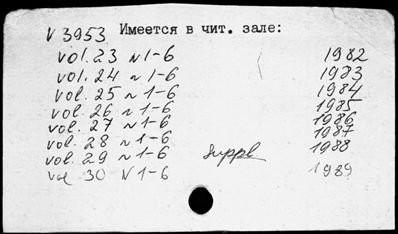 V 3953 Имеется в чит. зале:
vol. 23 N 1-6 1982
vol. 24 N 1-6 1983
vol. 25 N 1-6 1984
vol. 26 N 1-6 1985
vol. 27 N 1-6 1986
vol. 28 N 1-6 1987
vol. 29 N 1-6 suppl 1988
vol 30 N 1-6 1989